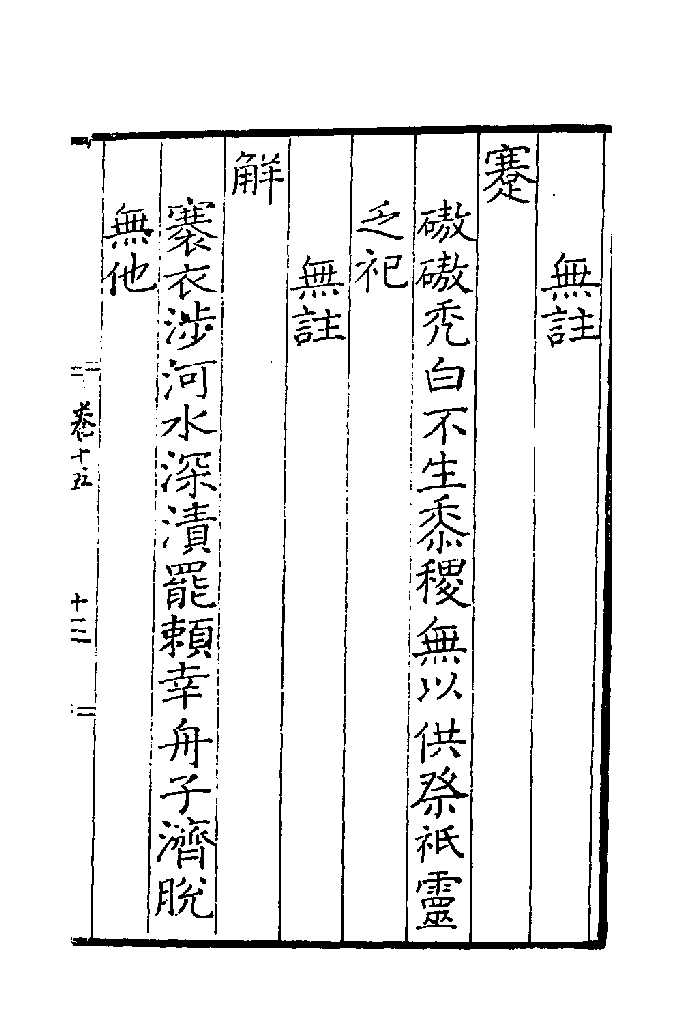 無註
蹇
磝磝禿白不生黍稷無以供祭祇靈
乏祀
無註
解
褰衣涉河水深漬罷頼幸舟子濟脫
無他
卷十五
十三